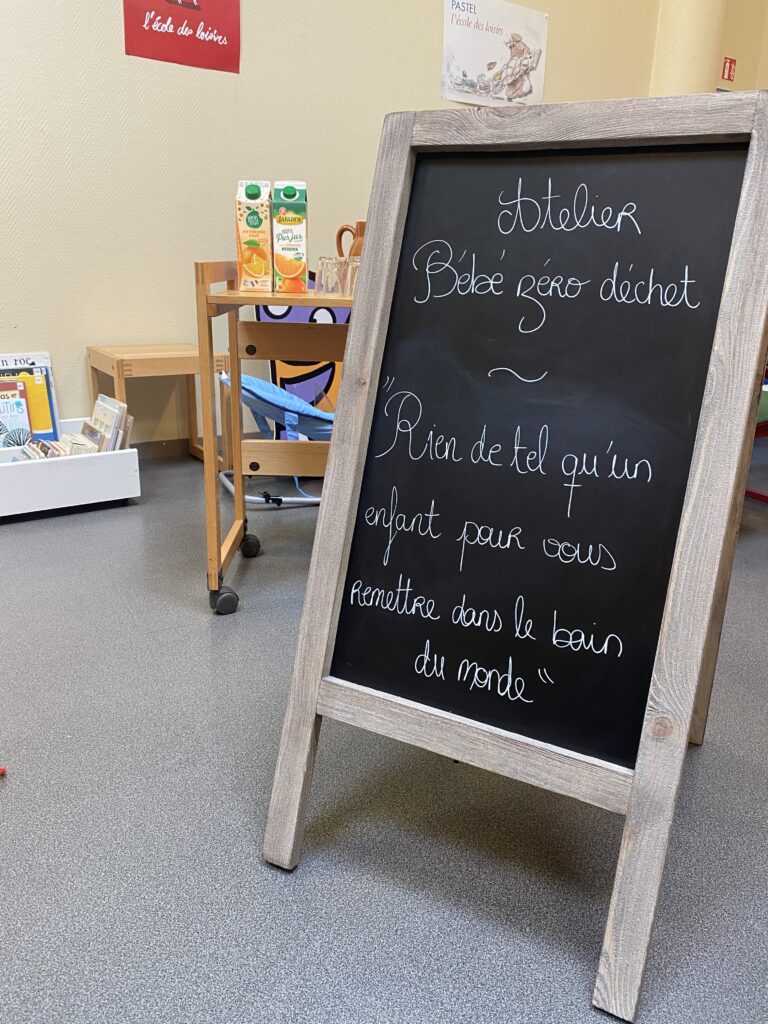 l'école des loisirs
PASTEL
l'école des loisirs
JAFADEN
Pur jus
Atelier
Bébé zéro déchet
~
"Rien de tel qu'un
enfant pour vous
remettre dans le bain
du monde"